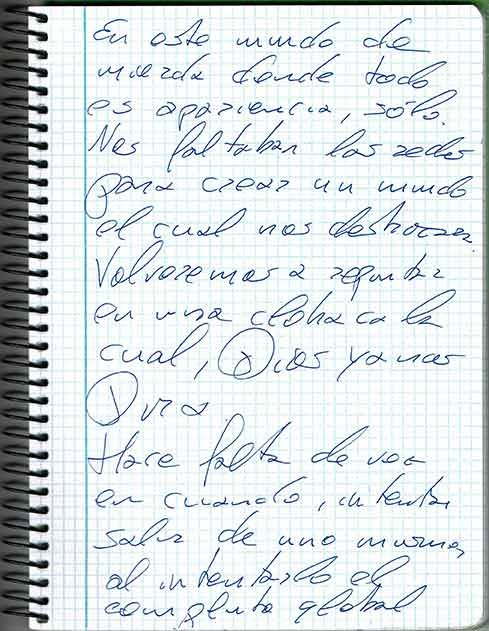 En este mundo de
mierda donde todo
es apariencia, sólo.
Nos faltaban las redes
para crear un mundo
el cual nos destrozar
Volveremos a
en una cloaca la
cual, Dios ya nos
Dira
Hace falta de vez
en cuando, intentar
salir de uno mismo,
al intentarlo el
global